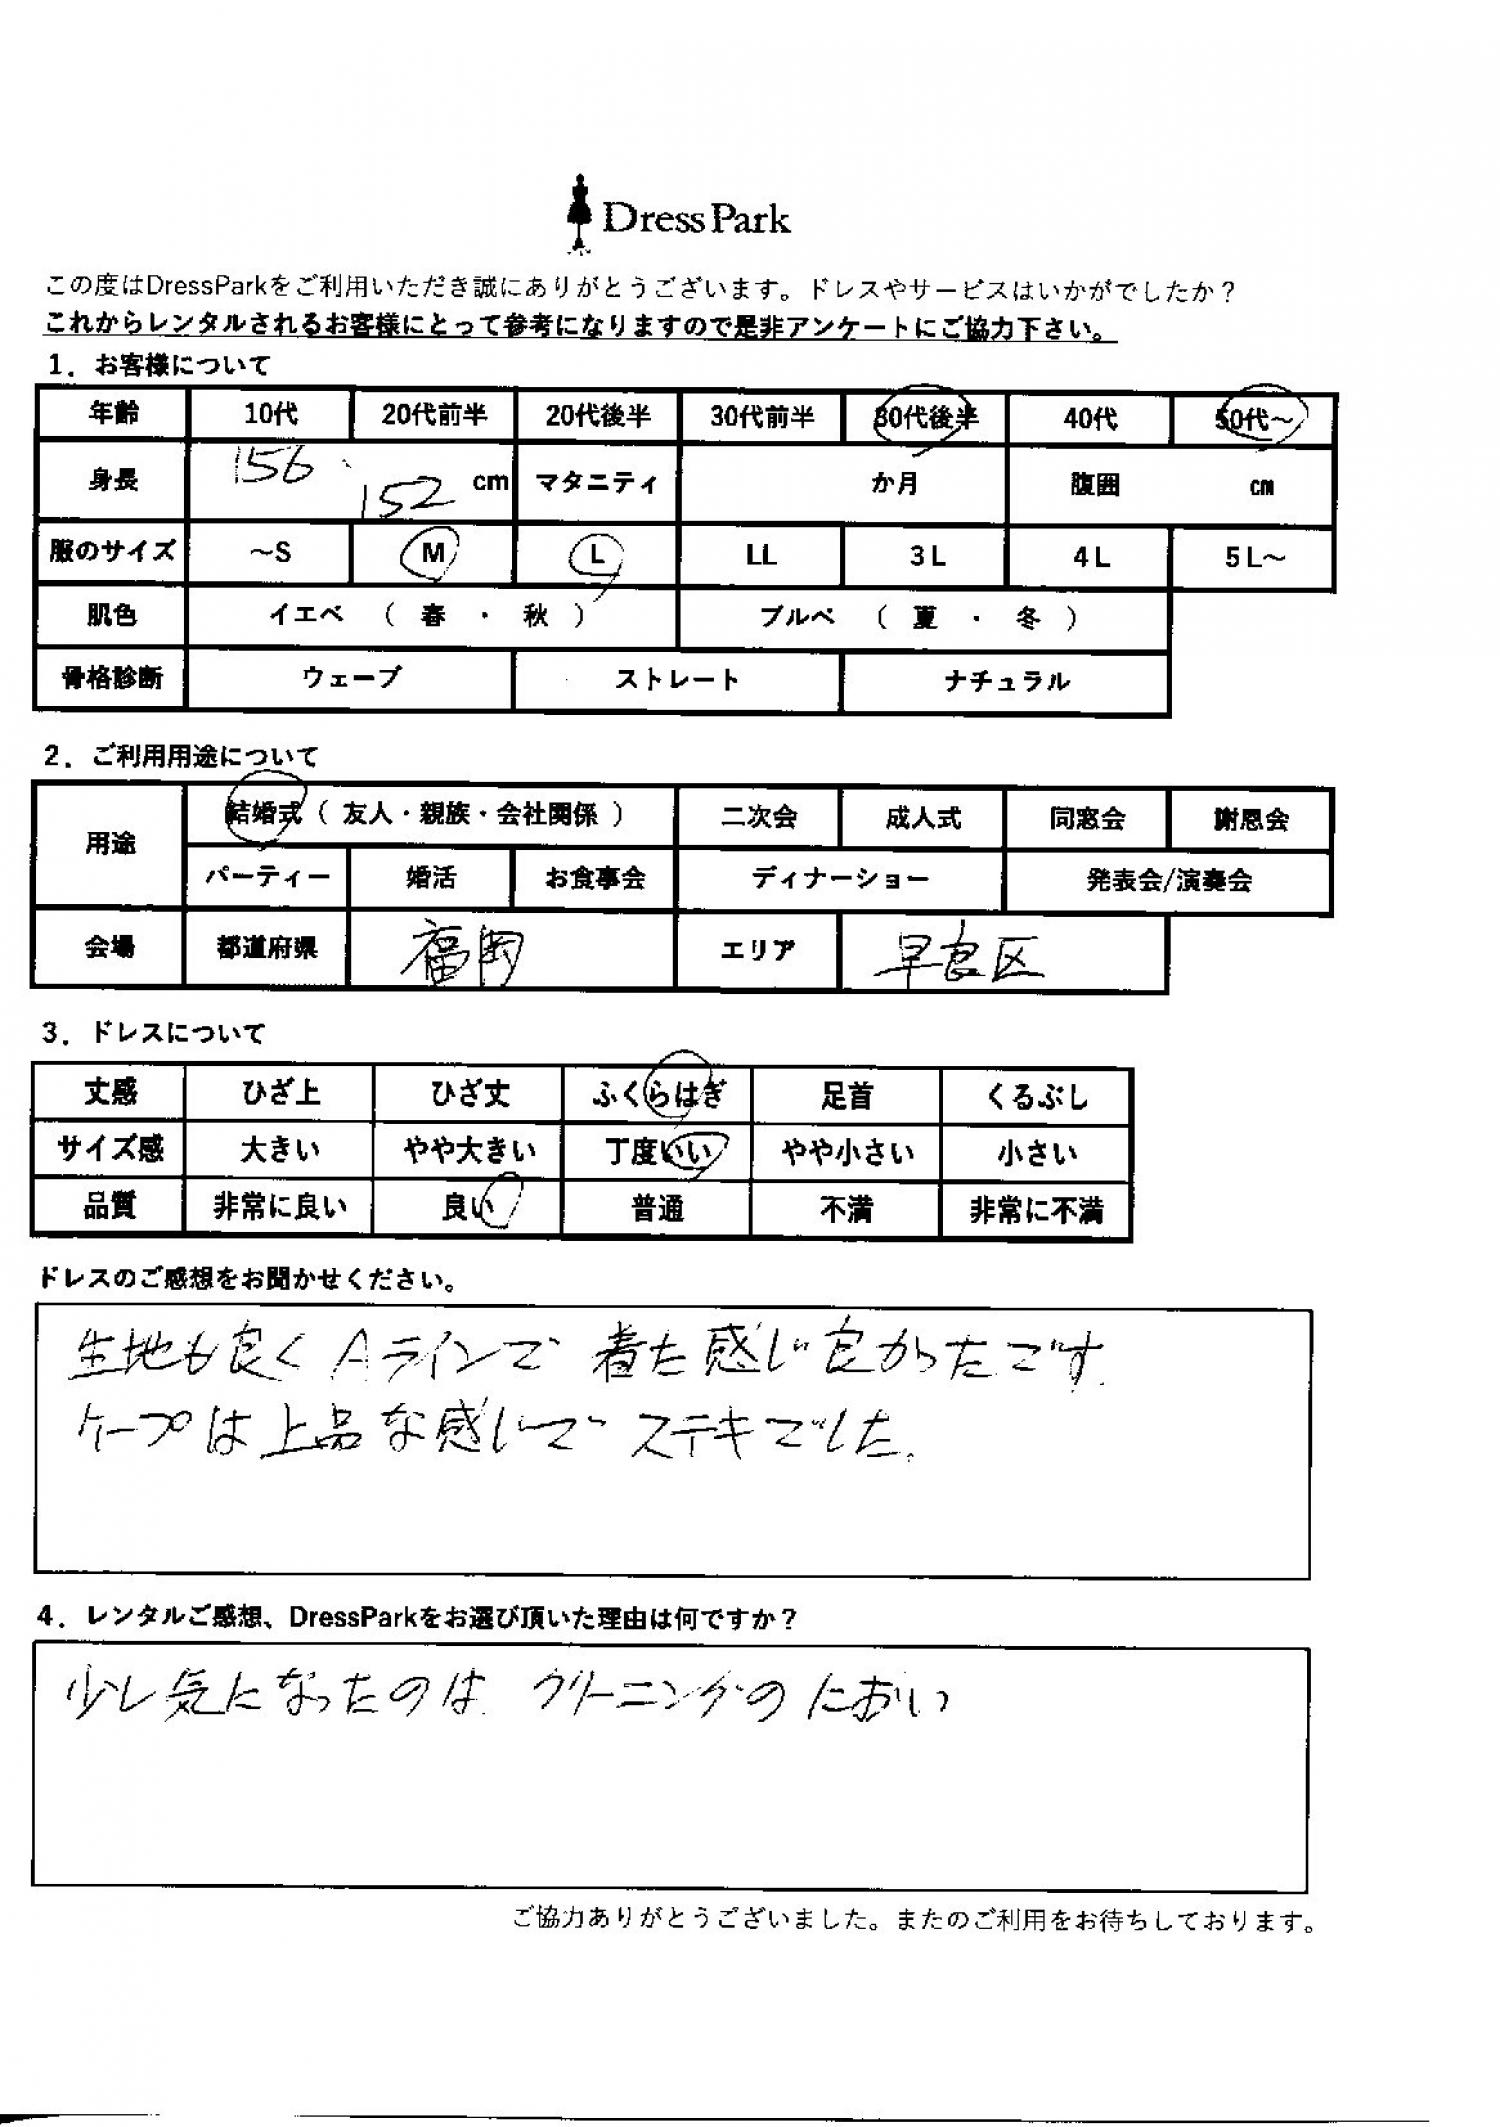 Dress Park
この度はDressParkをご利用いただき誠にありがとうございます。ドレスやサービスはいかがでしたか？
これからレンタルされるお客様にとって参考になりますので是非アンケートにご協力下さい。
1．お客様について
年齢 10代 20代前半 20代後半 30代前半 30代後半 40代 50代～
身長 156 152 cm マタニティ か月 腹囲 cm
服のサイズ ～S M L LL 3L 4L 5L～
肌色 イエベ （ 春 ・ 秋 ） ブルベ （ 夏 ・ 冬 ）
骨格診断 ウェーブ ストレート ナチュラル
2．ご利用用途について
用途 結婚式（ 友人・親族・会社関係 ） 二次会 成人式 同窓会 謝恩会
パーティー 婚活 お食事会 ディナーショー 発表会/演奏会
会場 都道府県 福岡 エリア 早良区
3．ドレスについて
丈感 ひざ上 ひざ丈 ふくらはぎ 足首 くるぶし
サイズ感 大きい やや大きい 丁度いい やや小さい 小さい
品質 非常に良い 良い 普通 不満 非常に不満
ドレスのご感想をお聞かせください。
生地も良くAラインで 着た感じ良かったです.
ケープは上品な感じで ステキでした.
4．レンタルご感想、DressParkをお選び頂いた理由は何ですか？
少し気になったのは クリーニングのにおい
ご協力ありがとうございました。またのご利用をお待ちしております。